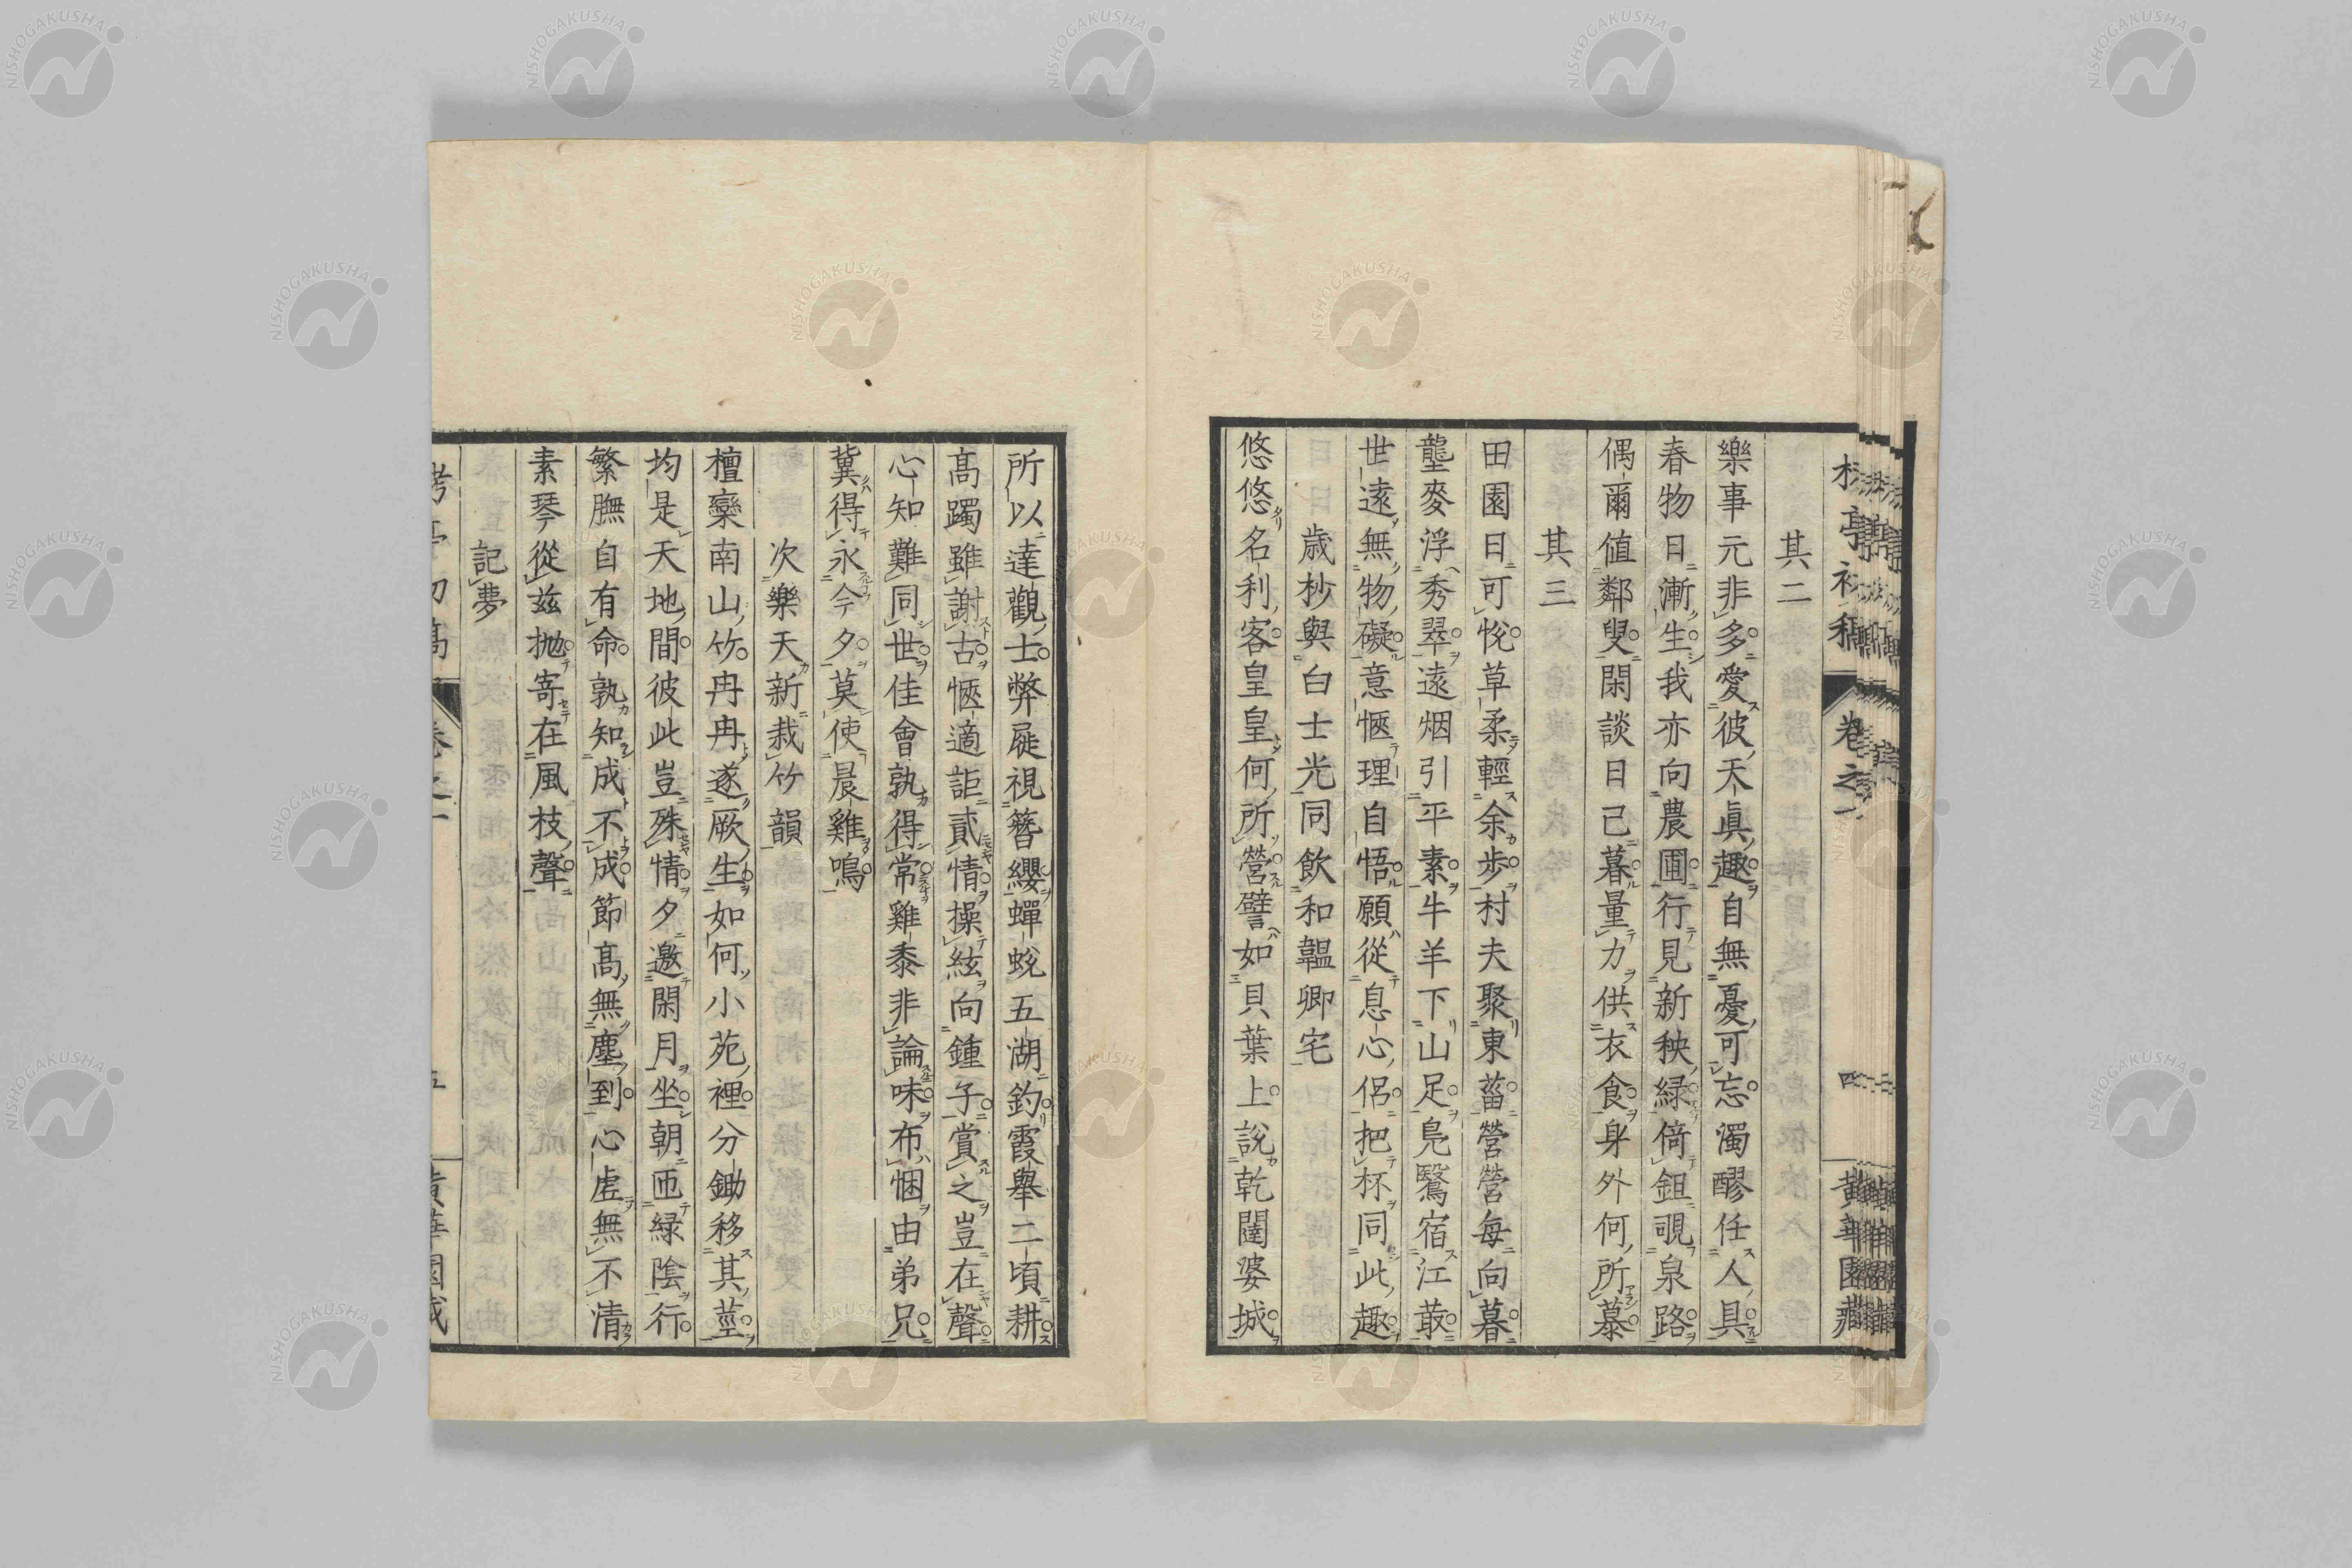 其二
樂事元非多愛彼天眞趣自無憂可忘濁醪任人具
春物日漸生我亦向農圃行見新秧綠倚鉏覗泉路
偶爾值鄰叟閑談日已暮量力供衣食身外何所慕
其三
田園日可悅草柔輕余步村夫聚東菑營營每向暮
壟麥浮秀翠遠烟引平素牛羊下山足鳧鷖宿江菆
世遠無物礙意愜理自悟願從息心侶把杯同此趣
歲杪與白士光同飲和韞卿宅
悠悠名利客皇皇何所營譬如貝葉上說乾闥婆城
所以達觀士弊屣視簪纓蟬蛻五湖釣霞舉二頃耕
高躅雖謝古愜適詎貳情操絃向鍾子賞之豈在聲
心知難同世佳會孰得常雞黍非論味布悃由弟兄
冀得永今夕莫使晨雞鳴
次樂天新栽竹韻
檀欒南山竹冉冉遂厥生如何小苑裡分鋤移其莖
均是天地間彼此豈殊情夕邀閑月坐朝匝綠陰行
繁膴自有命孰知成不成節高無塵到心虛無不清
素琴從茲抛寄在風枝聲
記夢
卷之一
黃華園藏
NISHOGAKUSHA